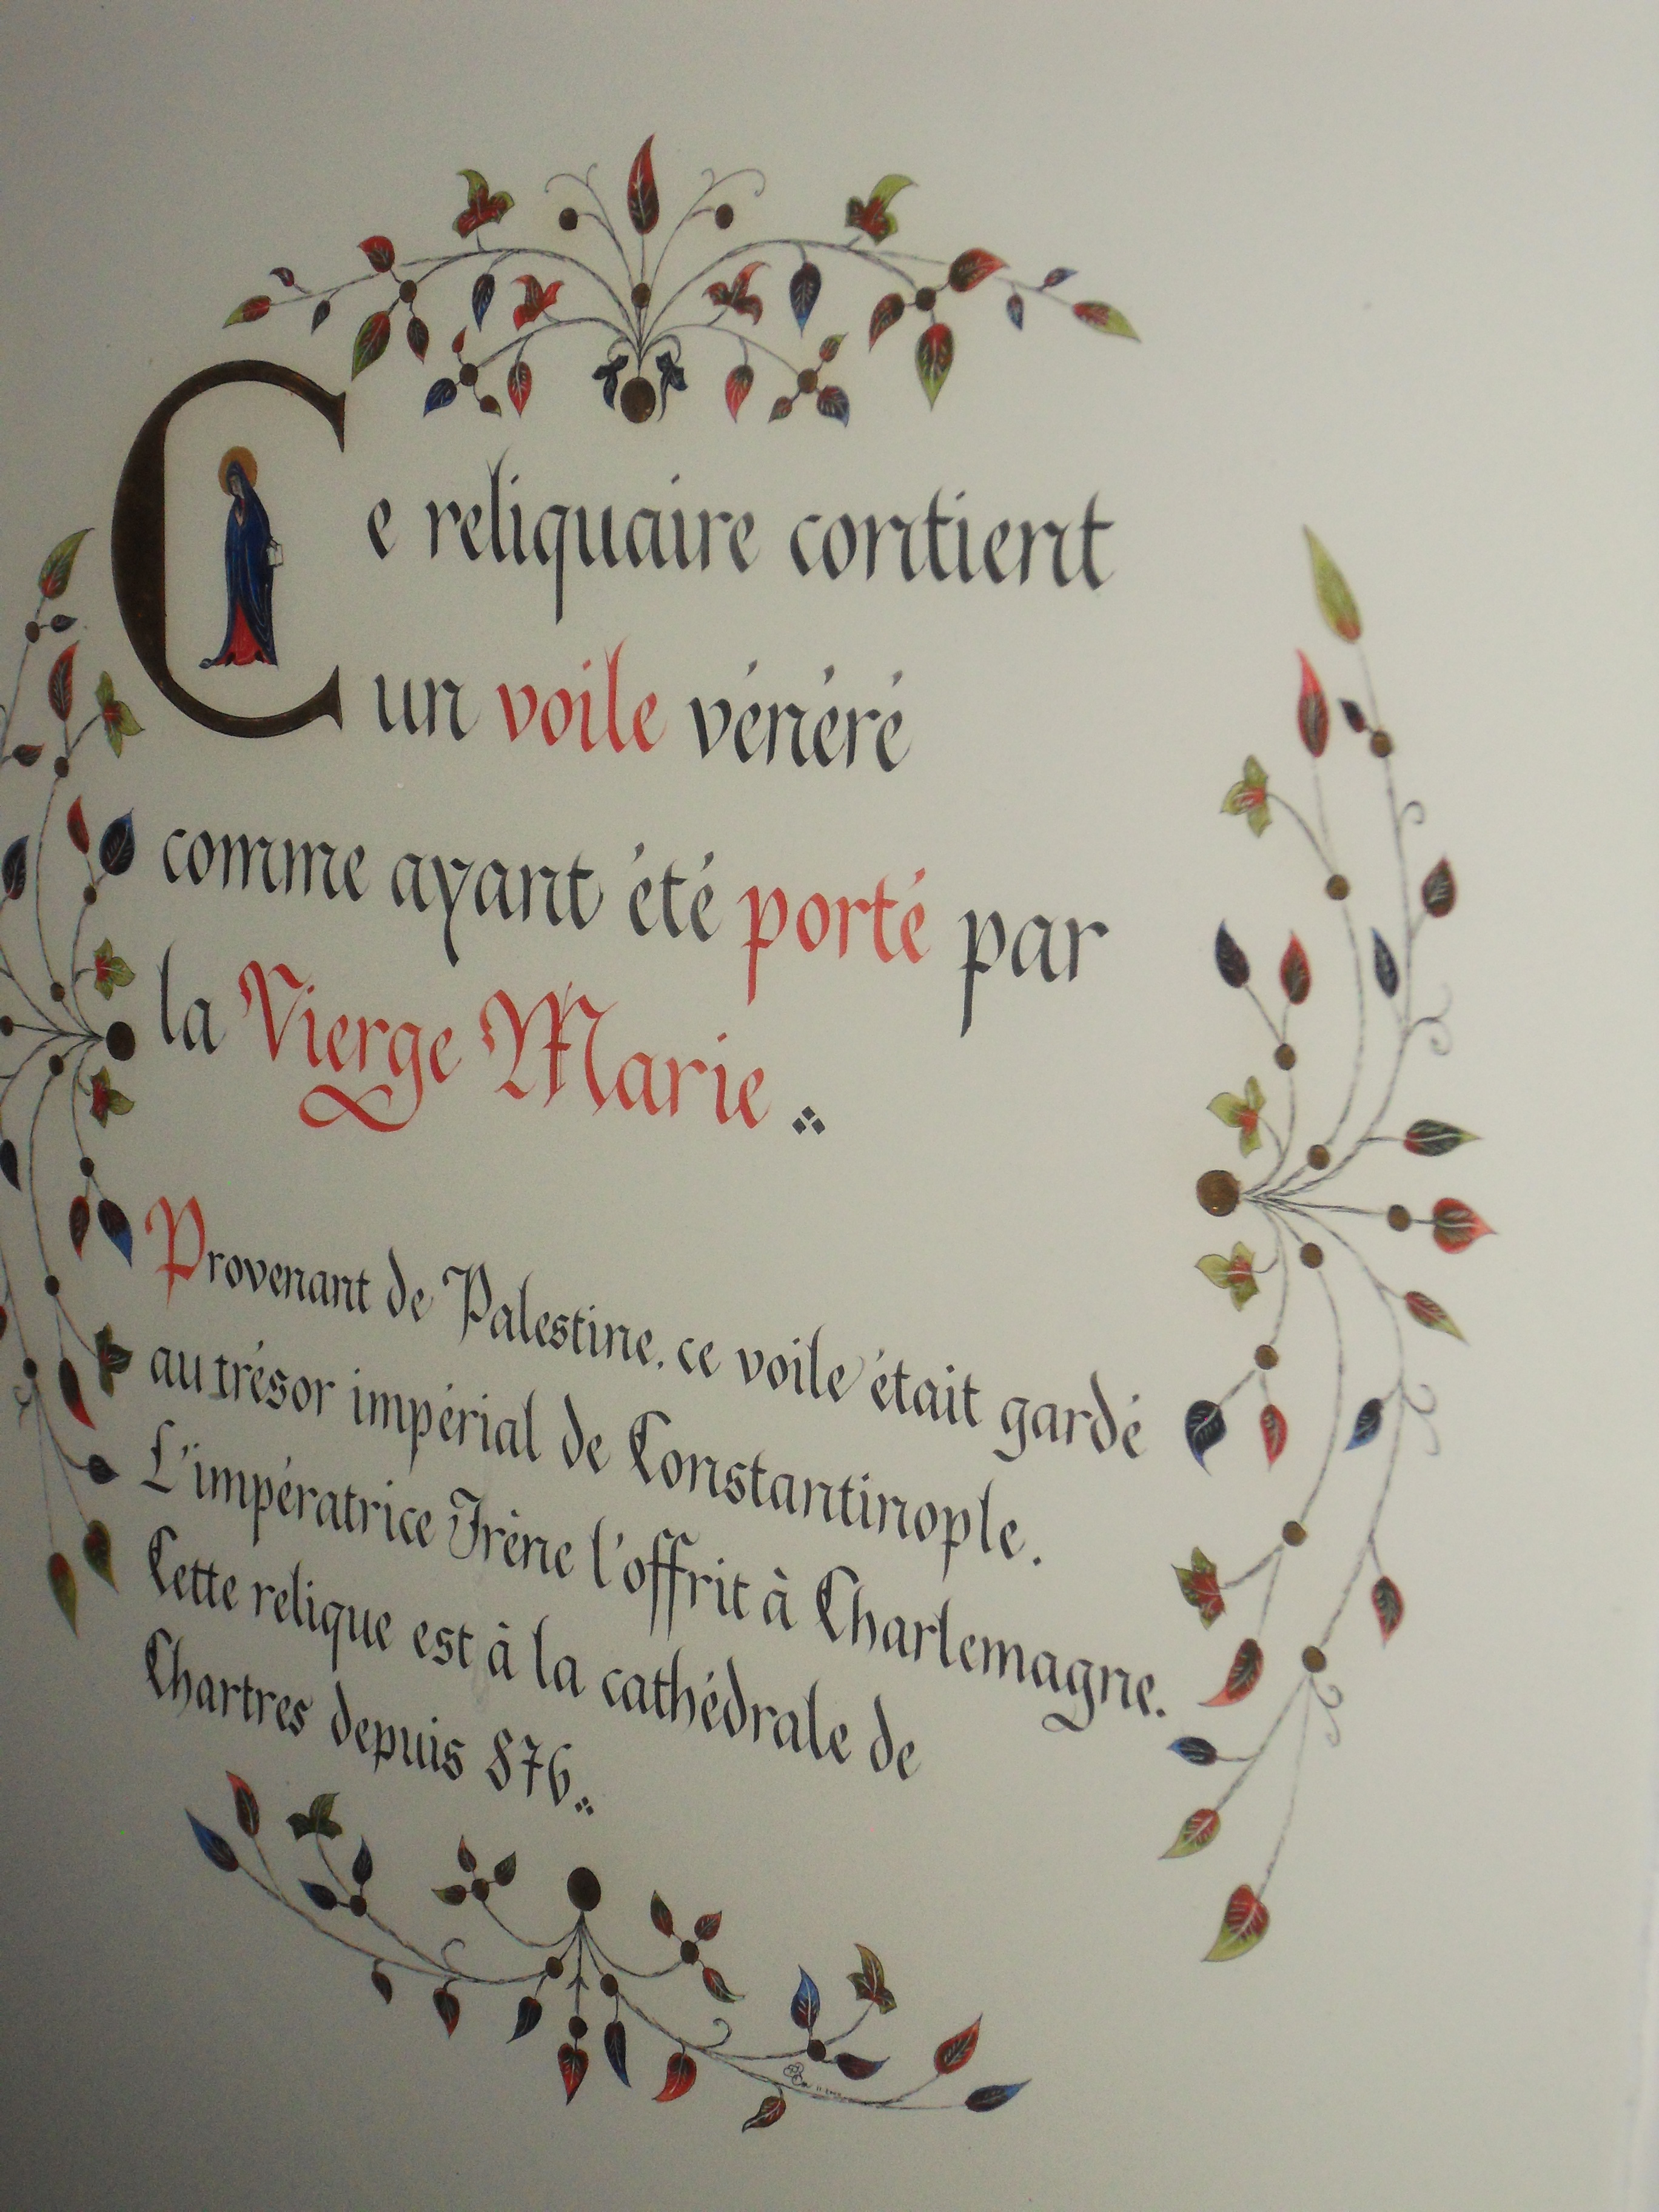 Ce reliquaire contient
un voile vénéré
comme ayant été porté par
la Vierge Marie
Provenant de Palestine, ce voile était gardé
au trésor impérial de Constantinople.
L'impératrice Irène l'offrit à Charlemagne.
Cette relique est à la cathédrale de
Chartres depuis 876